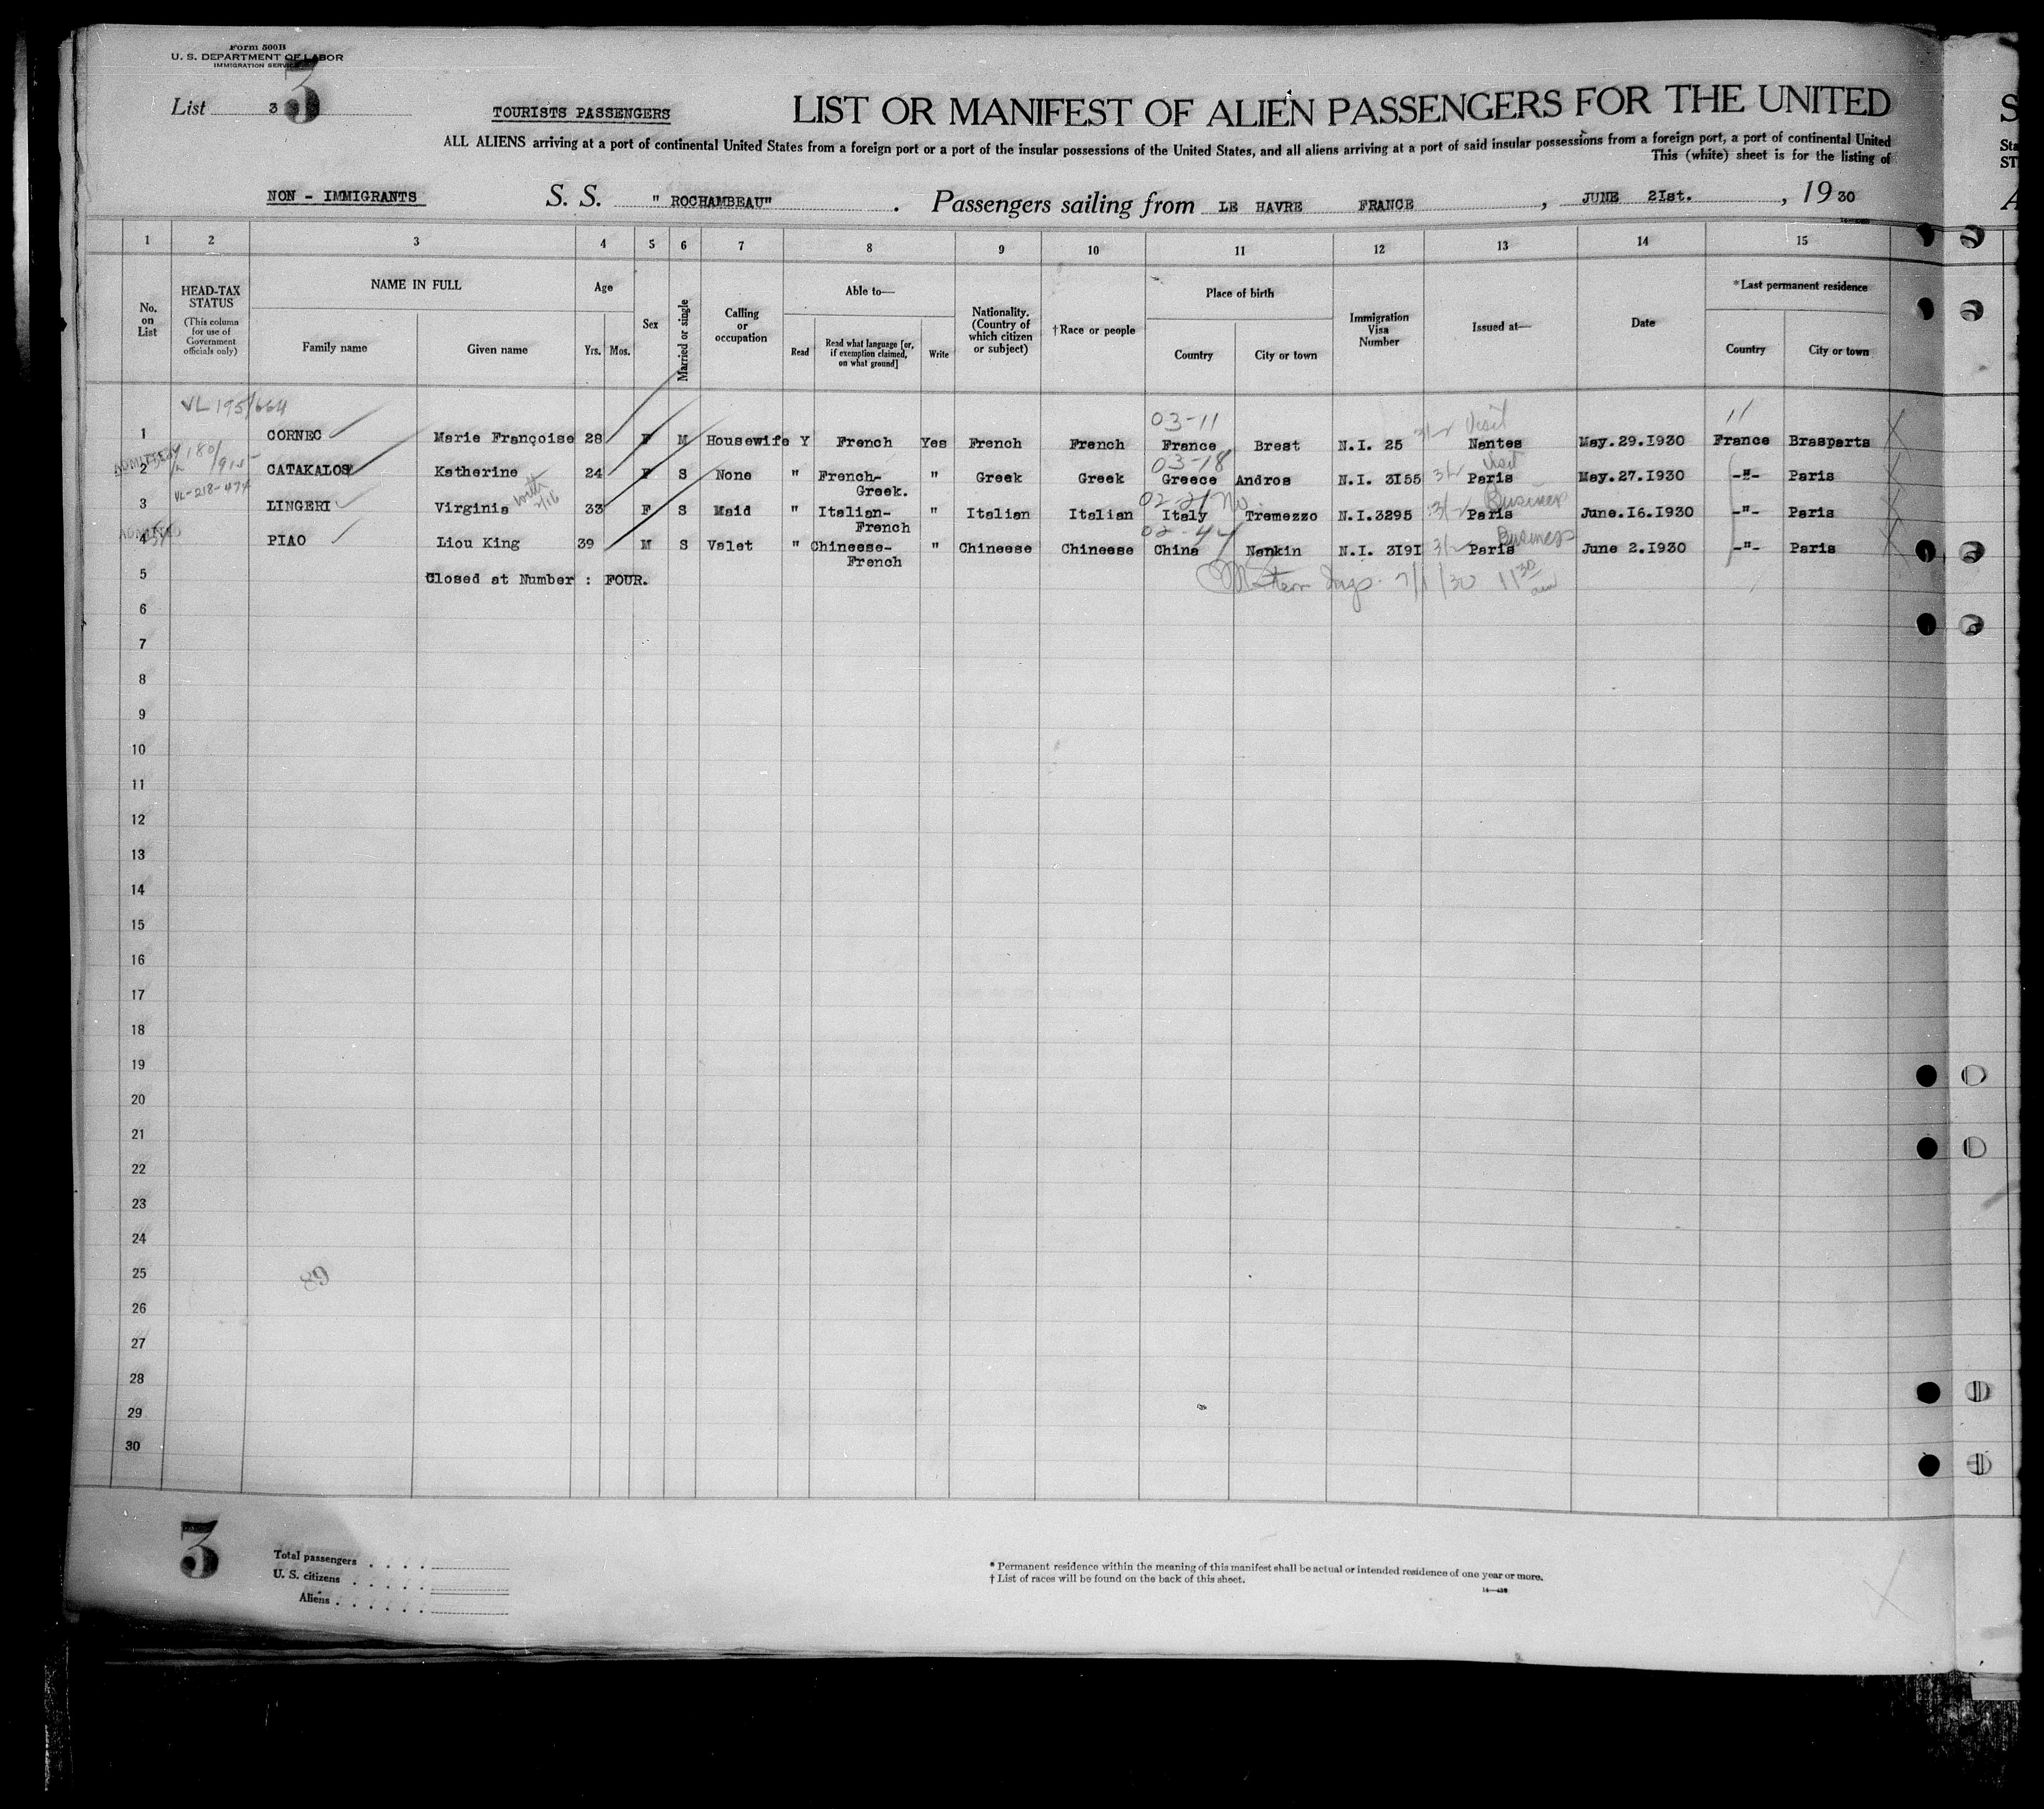 Form 500B
U. S. DEPARTMENT OF LABOR
IMMIGRATION SERVICE
List 3 3
TOURISTS PASSENGERS
LIST OR MANIFEST OF ALIEN PASSENGERS FOR THE UNITED
ALL ALIENS arriving at a port of continental United States from a foreign port or a port of the insular possessions of the United States, and all aliens arriving at a port of said insular possessions from a foreign port, a port of continental United
This (white) sheet is for the listing of
NON - IMMIGRANTS S. S. " ROCHAMBEAU" . Passengers sailing from LE HAVRE FRANCE , JUNE 2Ist. , 19 30
1 2 3 4 5 6 7 8 9 10 11 12 13 14 15
No. on List
HEAD-TAX STATUS
(This column for use of Government officials only)
NAME IN FULL
Family name Given name
Age
Yrs. Mos.
Sex
Married or single
Calling or occupation
Able to—
Read
Read what language [or, if exemption claimed, on what ground]
Write
Nationality. (Country of which citizen or subject)
†Race or people
Place of birth
Country City or town
Immigration Visa Number
Issued at—
Date
*Last permanent residence
Country City or town
VL 195/664 03-11 Visit 11
1 CORNEC Marie Françoise 28 F M Housewife Y French Yes French French France Brest N.I. 25 Nantes May.29.I930 France Brasparts
ADMITTED 180/915 03-18 Visit
2 CATAKALOS Katherine 24 F S None " French- " Greek Greek Greece Andros N.I. 3I55 Paris May.27.I930 -"- Paris
Greek.
VL-218-474 with 02-21 No Business
3 LINGERI Virginia 33 F S Maid " Italian- " Italian Italian Italy Tremezzo N.I.3295 Paris June.I6.I930 -"- Paris
French
ADMITTED 02-44 Business
4 PIAO Liou King 39 M S Valet " Chineese- " Chineese Chineese China Nankin N.I. 3I9I Paris June 2.I930 -"- Paris
French
5 Closed at Number : FOUR. 7/1/30 11 30
6
7
8
9
10
11
12
13
14
15
16
17
18
19
20
21
22
23
24
25
89
26
27
28
29
30
3
Total passengers . . . .
U. S. citizens . . . . .
Aliens . . . . . .
* Permanent residence within the meaning of this manifest shall be actual or intended residence of one year or more.
† List of races will be found on the back of this sheet.